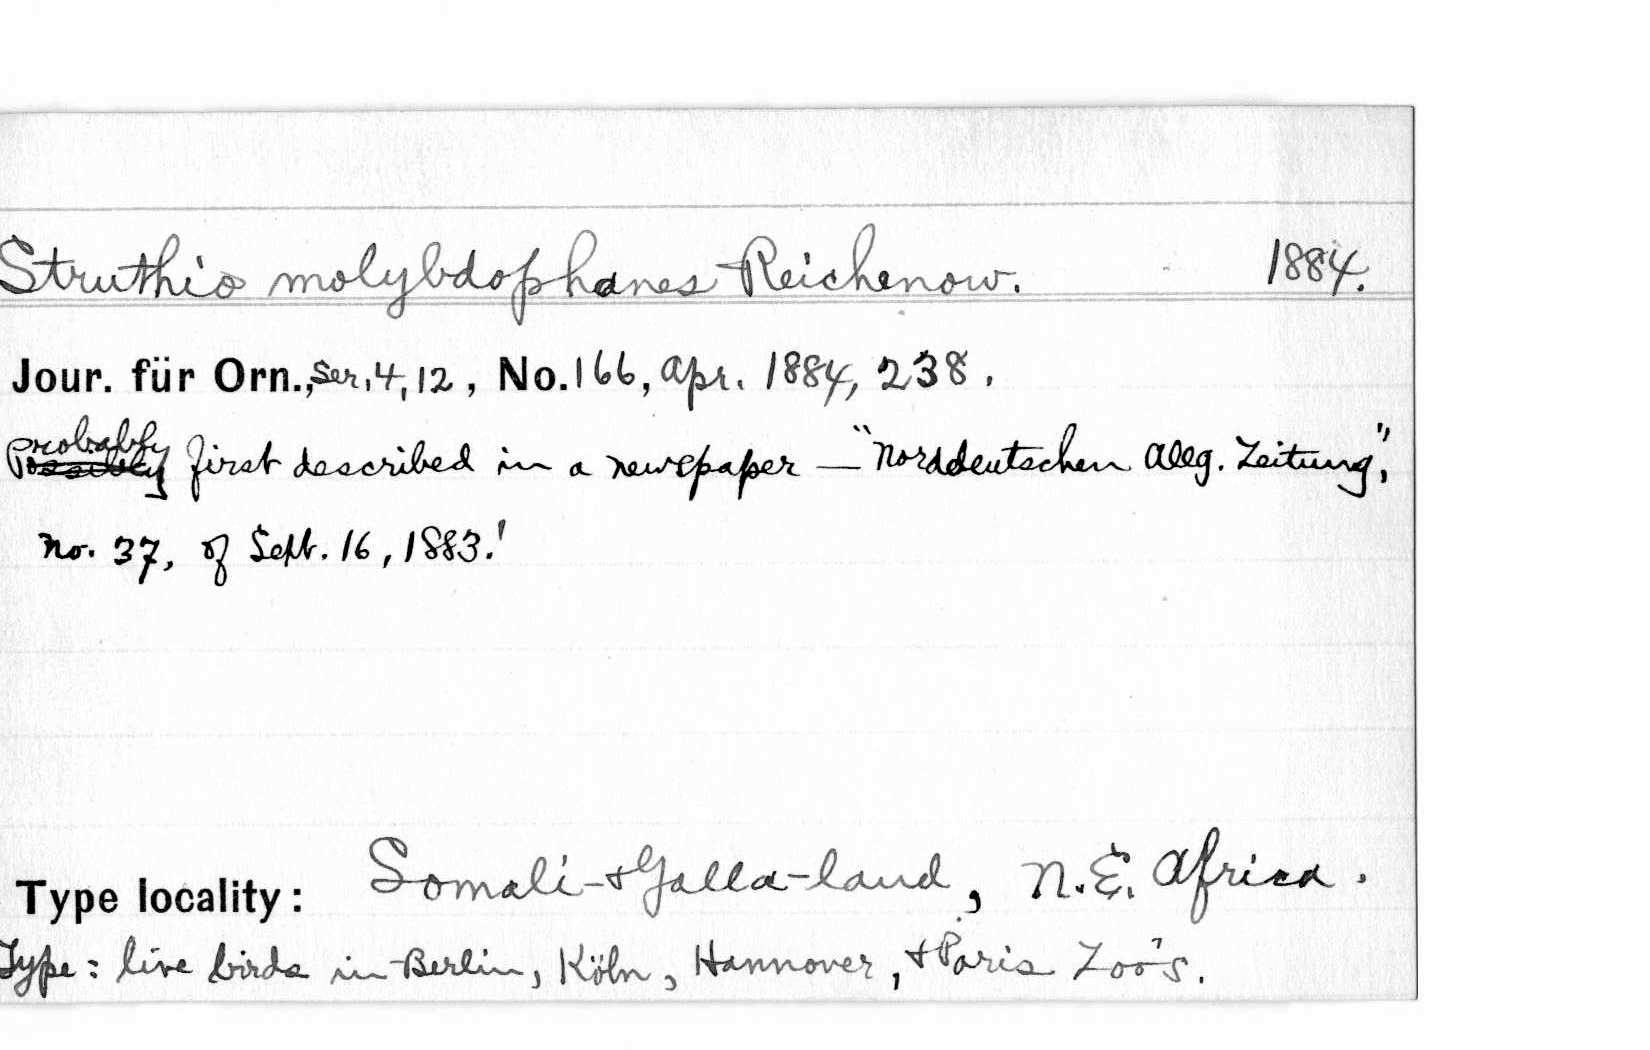 Struthio molybdophanes Reichenow. 1884.
Jour. für Orn., Ser. 4, 12, No. 166, Apr. 1884, 238.
probably
Possibly first described in a newspaper — "Norddeutschen Allg. Zeitung,"
no. 37, of Sept. 16, 1883.!
Type locality: Somali- & Galla-land, N.E. Africa.
Type: live birds in Berlin, Köln, Hannover, & Paris Zoo's.